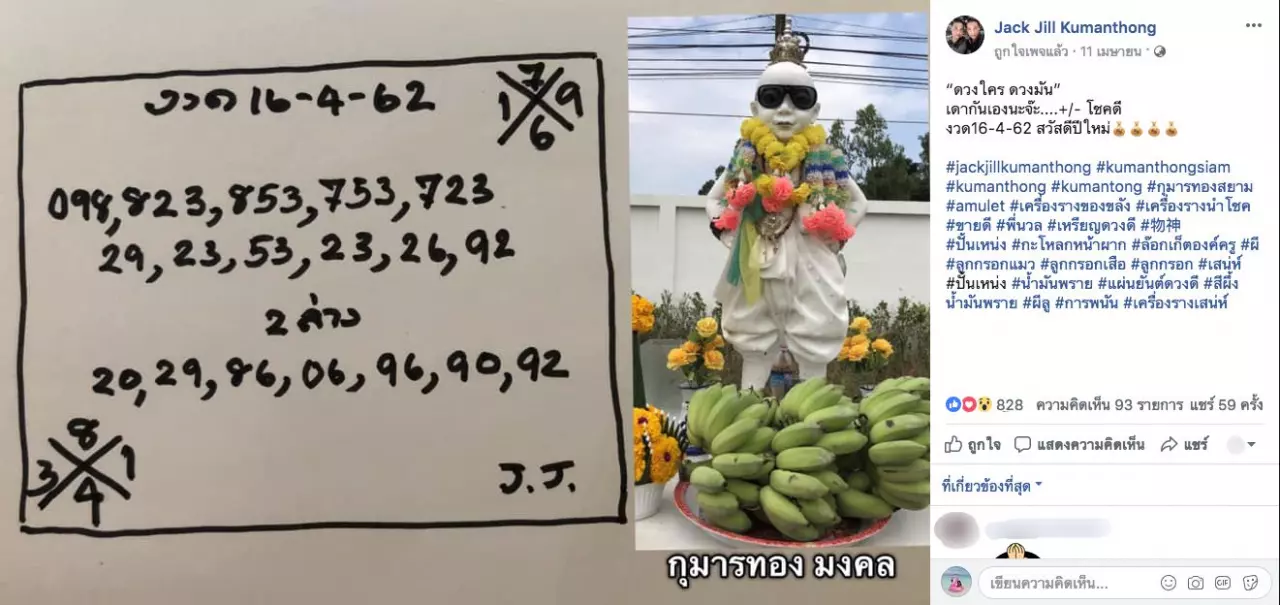 งวด 16-4-62
7
1 9
6
098, 823, 853, 753, 723
29, 23, 53, 23, 26, 92
2 ล่าง
20, 29, 86, 06, 96, 90, 92
8
3 1
4
J.J.
กุมารทอง มงคล
Jack Jill Kumanthong
ถูกใจเพจแล้ว · 11 เมษายน ·
“ดวงใคร ดวงมัน”
เดากันเองนะจ๊ะ....+/- โชคดี
งวด16-4-62 สวัสดีปีใหม่💰💰💰💰
#jackjillkumanthong #kumanthongsiam
#kumanthong #kumantong #กุมารทองสยาม
#amulet #เครื่องรางของขลัง #เครื้องรางนำโชค
#ขายดี #พี่นวล #เหรียญดวงดี #物神
#ปั้นเหน่ง #กะโหลกหน้าผาก #ล๊อกเก็ตองค์ครู #ผี
#ลูกกรอกแมว #ลูกกรอกเสือ #ลูกกรอก #เสน่ห์
#ปั้นเหน่ง #น้ำมันพราย #แผ่นยันต์ดวงดี #สีผึ้ง
น้ำมันพราย #ผีลู #การพนัน #เครื่องรางเสน่ห์
828 ความคิดเห็น 93 รายการ แชร์ 59 ครั้ง
ถูกใจ แสดงความคิดเห็น แชร์
ที่เกี่ยวข้องที่สุด
เขียนความคิดเห็น...
GIF